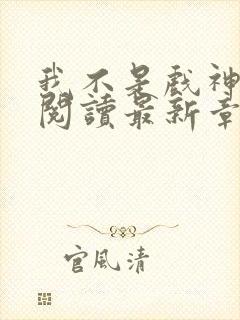 我不是戲神
閱讀最新章
官風清